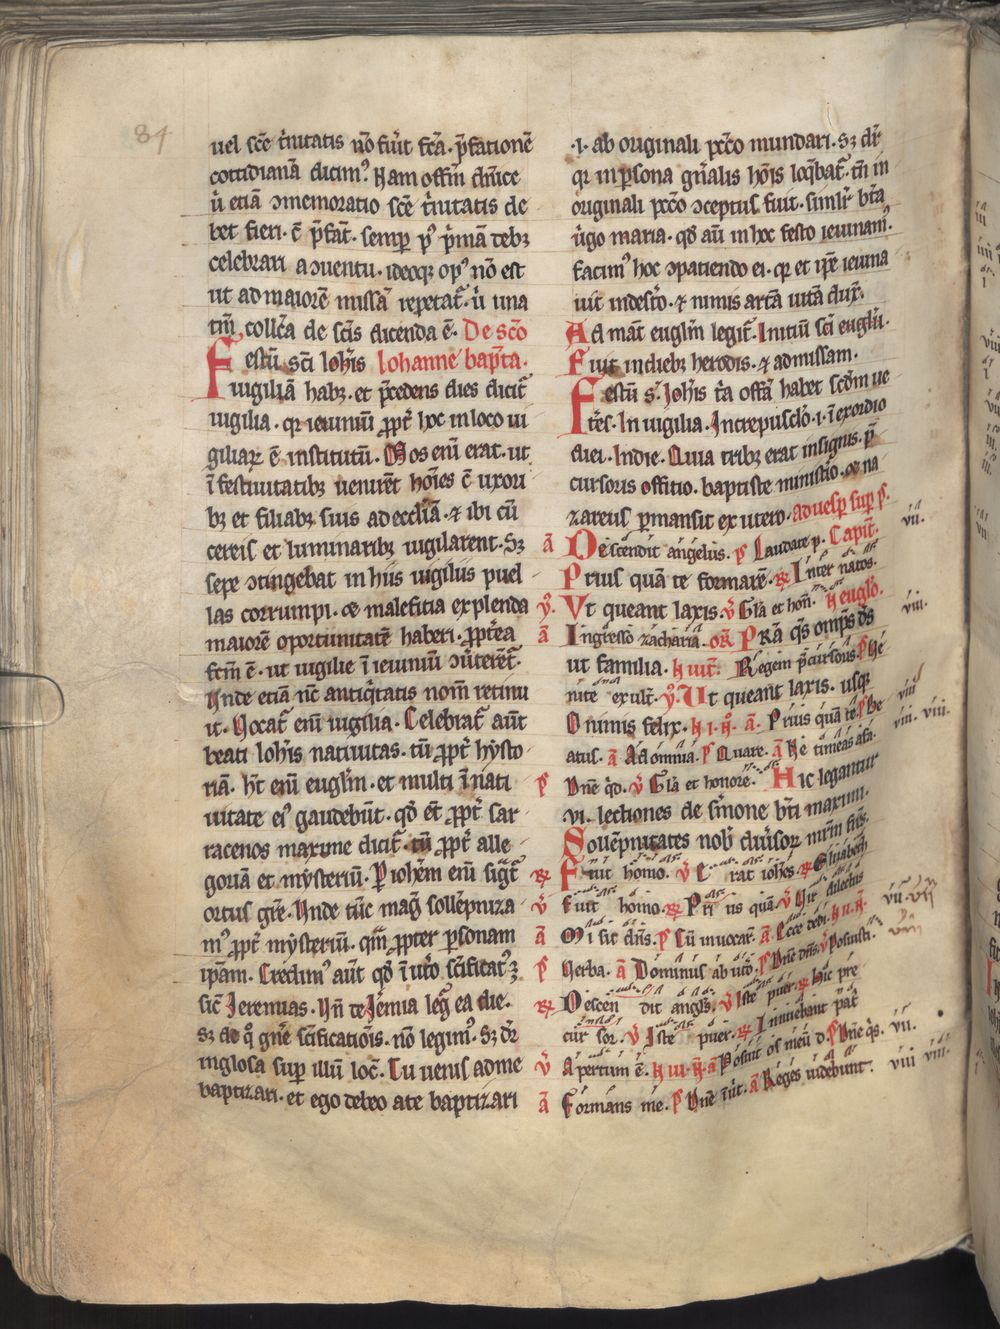 84
uel scē t̓nitatis nō fuit̓ fcā. p̄fationē
cottidianā dicim᷒. Nam offm̄ dn̄ice
ū etiā ↄmemoratio scē t̓nitatis de
bet fieri. ē p̄fat̄. semp p᷒ p̓mā debꝫ
celebrari aduentu. ideoqꝫ op᷒ nō est
ut ad maiorē missā repetat᷑. ū una
tm̄ collc̄a de scīs dicenda ē. De scō
Festū scī Ioh̓is Iohanne bap̄ta.
uigiliā habꝫ. et p̄cedens dies dicit᷑
uigilia. qꝛ ieiuniū ꝓpt̓ hoc in loco ui
giliaꝝ ē institutū. Mos enī erat. ut
ī festiuitatibꝫ uenirēt hoīes cū uxori
bꝫ et filiabꝫ suis ad ecclīā. ⁊ ibi cū
cereis et luminaribꝫ uigilarent. Sꝫ
sepe ↄtingebat in hiis uigiliis puel
las corrumpi. ⁊ malefitia explenda
maiorē oportunitatē haberi. ꝓpt̓ea
fctm̄ ē. ut uigilie ī ieiuniū ↄu̓terēt᷑.
Vnde etiā nūc antiq̓tatis nom̄ retinu
it. Vocat᷑ enī uigilia. Celebrat᷑ aūt
beati Ioh̓is natiuitas. tū ꝓpt̓ hysto
riā. h̓t enī euglm̄. et multi ī nati
uitate ei᷒ gaudebūt. qd̓ ēt ꝓpt̓ sar
racenos maxime dicit᷑. tū ꝓpt̓ alle
goriā et mysteriū. P ioh̓em enī sigt᷑
ortus gr̄e. Vnde tūc mag̓ sollēpniza
m᷒ ꝓpt̓ mysteriū. qm̄ ꝓpter psonam
ipam̄. Credim᷒ aūt qd̓ ī ut̓o sc̄ificat᷒ ē
sic̄ Ieremias. Vn̄ de Iēmia leg̓ ea die.
Sꝫ de q̊ gn̄e sc̄ificatiois̄. nō legim᷒. Sꝫ dr̄
in glosa sup illū loc̄. Tu uenis ad me
baptizari. et ego debeo a te baptizari
.i. ab originali pcc̄o mundari. Sꝫ dr̄
qꝛ in psona gn̄alis hoīs loq̓bat᷑. tn̄ in
originali pcc̄o ↄceptus fuit. simlr̄ bt̄a
uirgo maria. qd̓ aū in hoc festo ieiunam᷒
facim᷒ hoc ↄpatiendo ei. qꝛ et ipe ieiuna
uit in dest̓o. ⁊ nimis artā uitā dux̄.
Ad mat̄ euglm̄ legit᷑. Initiū scī euglīi.
Fuit in diebꝫ herodis. ⁊ ad missam.
Festū s̄. Ioh̓is t̓a offā habet scdm̄ ue
t̓es. In uigilia. In crepusclō. i. ī exordio
diei. In die. Quia tribꝫ erat insignis. p̄
cursoris offitio. baptiste ministio. ⁊ na
zareus pmansit ex utero. ad uesp sup p̄.
ā Descendit angelus. p̄ Laudate p. Capit̄. vii.
Prius quā te formarē. ℟ Inter natos.
ẏ. Vt queant laxis. ℣ Glā et hon̄. N euglō. viii.
ā Ingresso zacharia. or̄. Pra qs omps ds
ut familia. N uit̄. Regem p̄cursoris. p̄ Ve
nite exult̄. ẏ. Ut queant laxis. usqꝫ viii
O nimis felix. N i. N̄. ā. Prius quā te. p̄ Be viii. viii.
atus. ā Ad omnia. p̄ Quare. ā Ne timeas a fa.
p̄ Dn̄e q̓d. ℣ Glā et honore. Hic legantur
vi. lectiones de s̓mone bt̄i maximi.
Sollēpnitates nob̓ diu̓sor mr̄m
℟ Fuit homo. ℣ rat ioh̓es. ℟ Elisabeth
℣ Fuit homo. ℟ Pri us quā. ℣ Vir dilectus
ā Mi sit dn̄s. p̄ Cū inuocar̄. ā Ecce dedi. N ii. N̄. vii. vii
p̄ Verba. ā Dominus ab ut̓o. p̄ Dn̄e dn̄s. ℣ Posuisti. viii
℟ Descen dit angls̄. ℣ Iste puer. ℟ Hic pre
cur sor. ℣ Iste puer. ℟ Innuebant pat̓
℣ Apertum ē. N iii. N̄. ā Posuit os meū d. p̄ Dn̄e q̓s. vii.
ā Formans me. p̄ Dn̄e īūt. ā Reges uidebunt. viii viii.